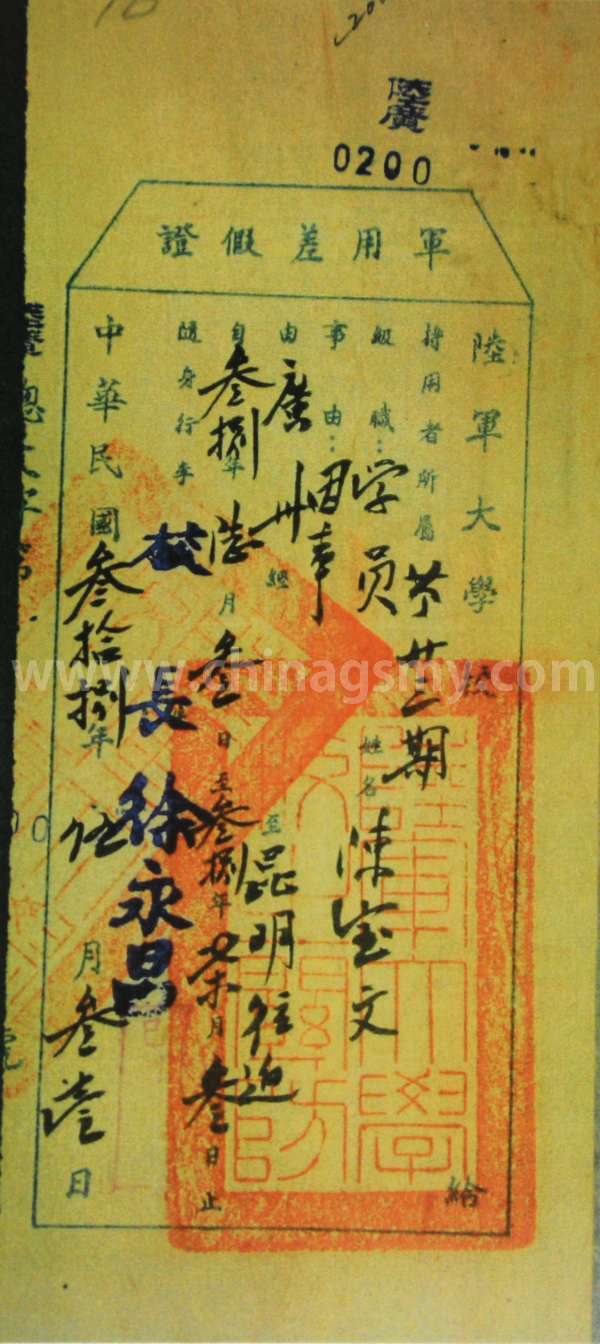 陸廣
0200
軍用差假證
陸軍大學校給
持用者所屬第廿三期
級職：学员 姓名 陳宝文
事由：因事
由廣州經 至昆明往返
自叁捌年陸月叁日至叁捌年柒月叁日止
隨身行李
校長徐永昌
中華民國叁拾捌年伍月叁壹日
www.chinagsmy.com